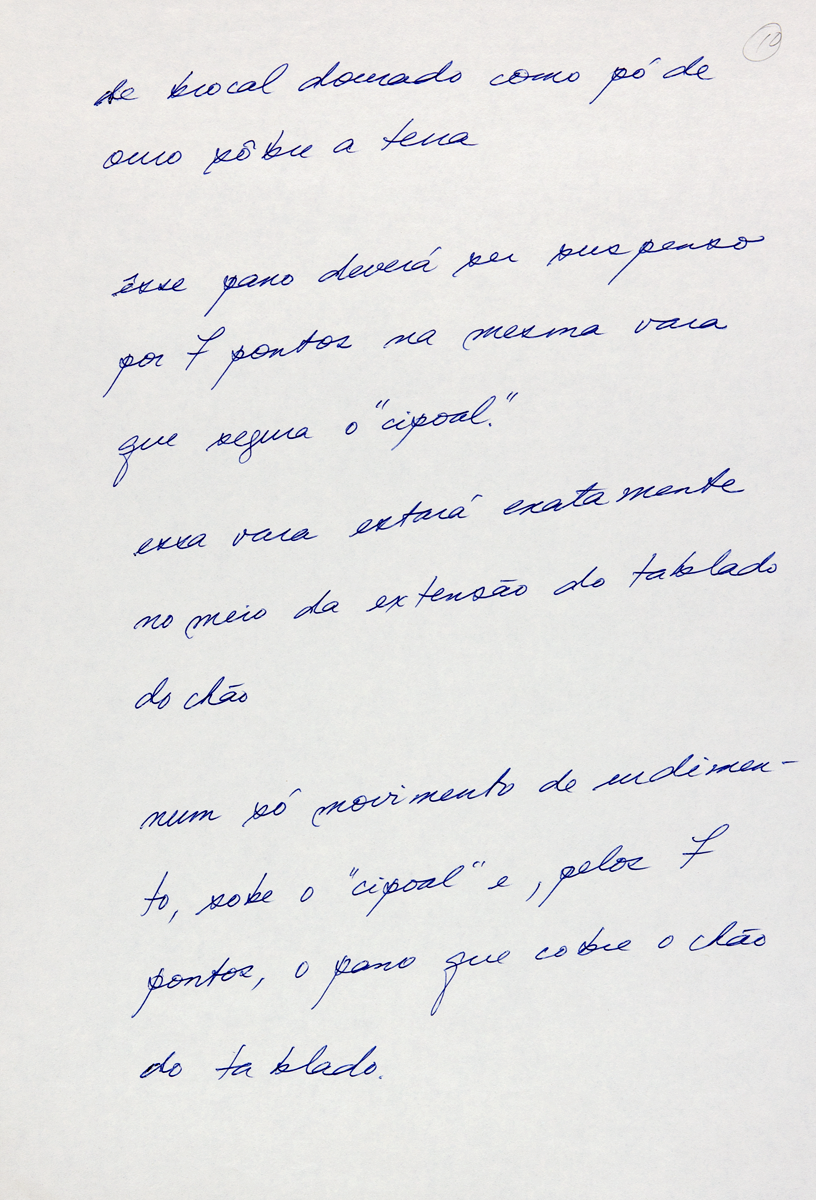 10
de brocal dourado como pó de
ouro sôbre a terra
êsse pano deverá ser suspenso
por 7 pontos na mesma vara
que segura o "cipoal."
essa vara estará exatamente
no meio da extensão do tablado
do chão
num só movimento de urdimen-
to, sobe o "cipoal" e, pelos 7
pontos, o pano que cobre o chão
do tablado.